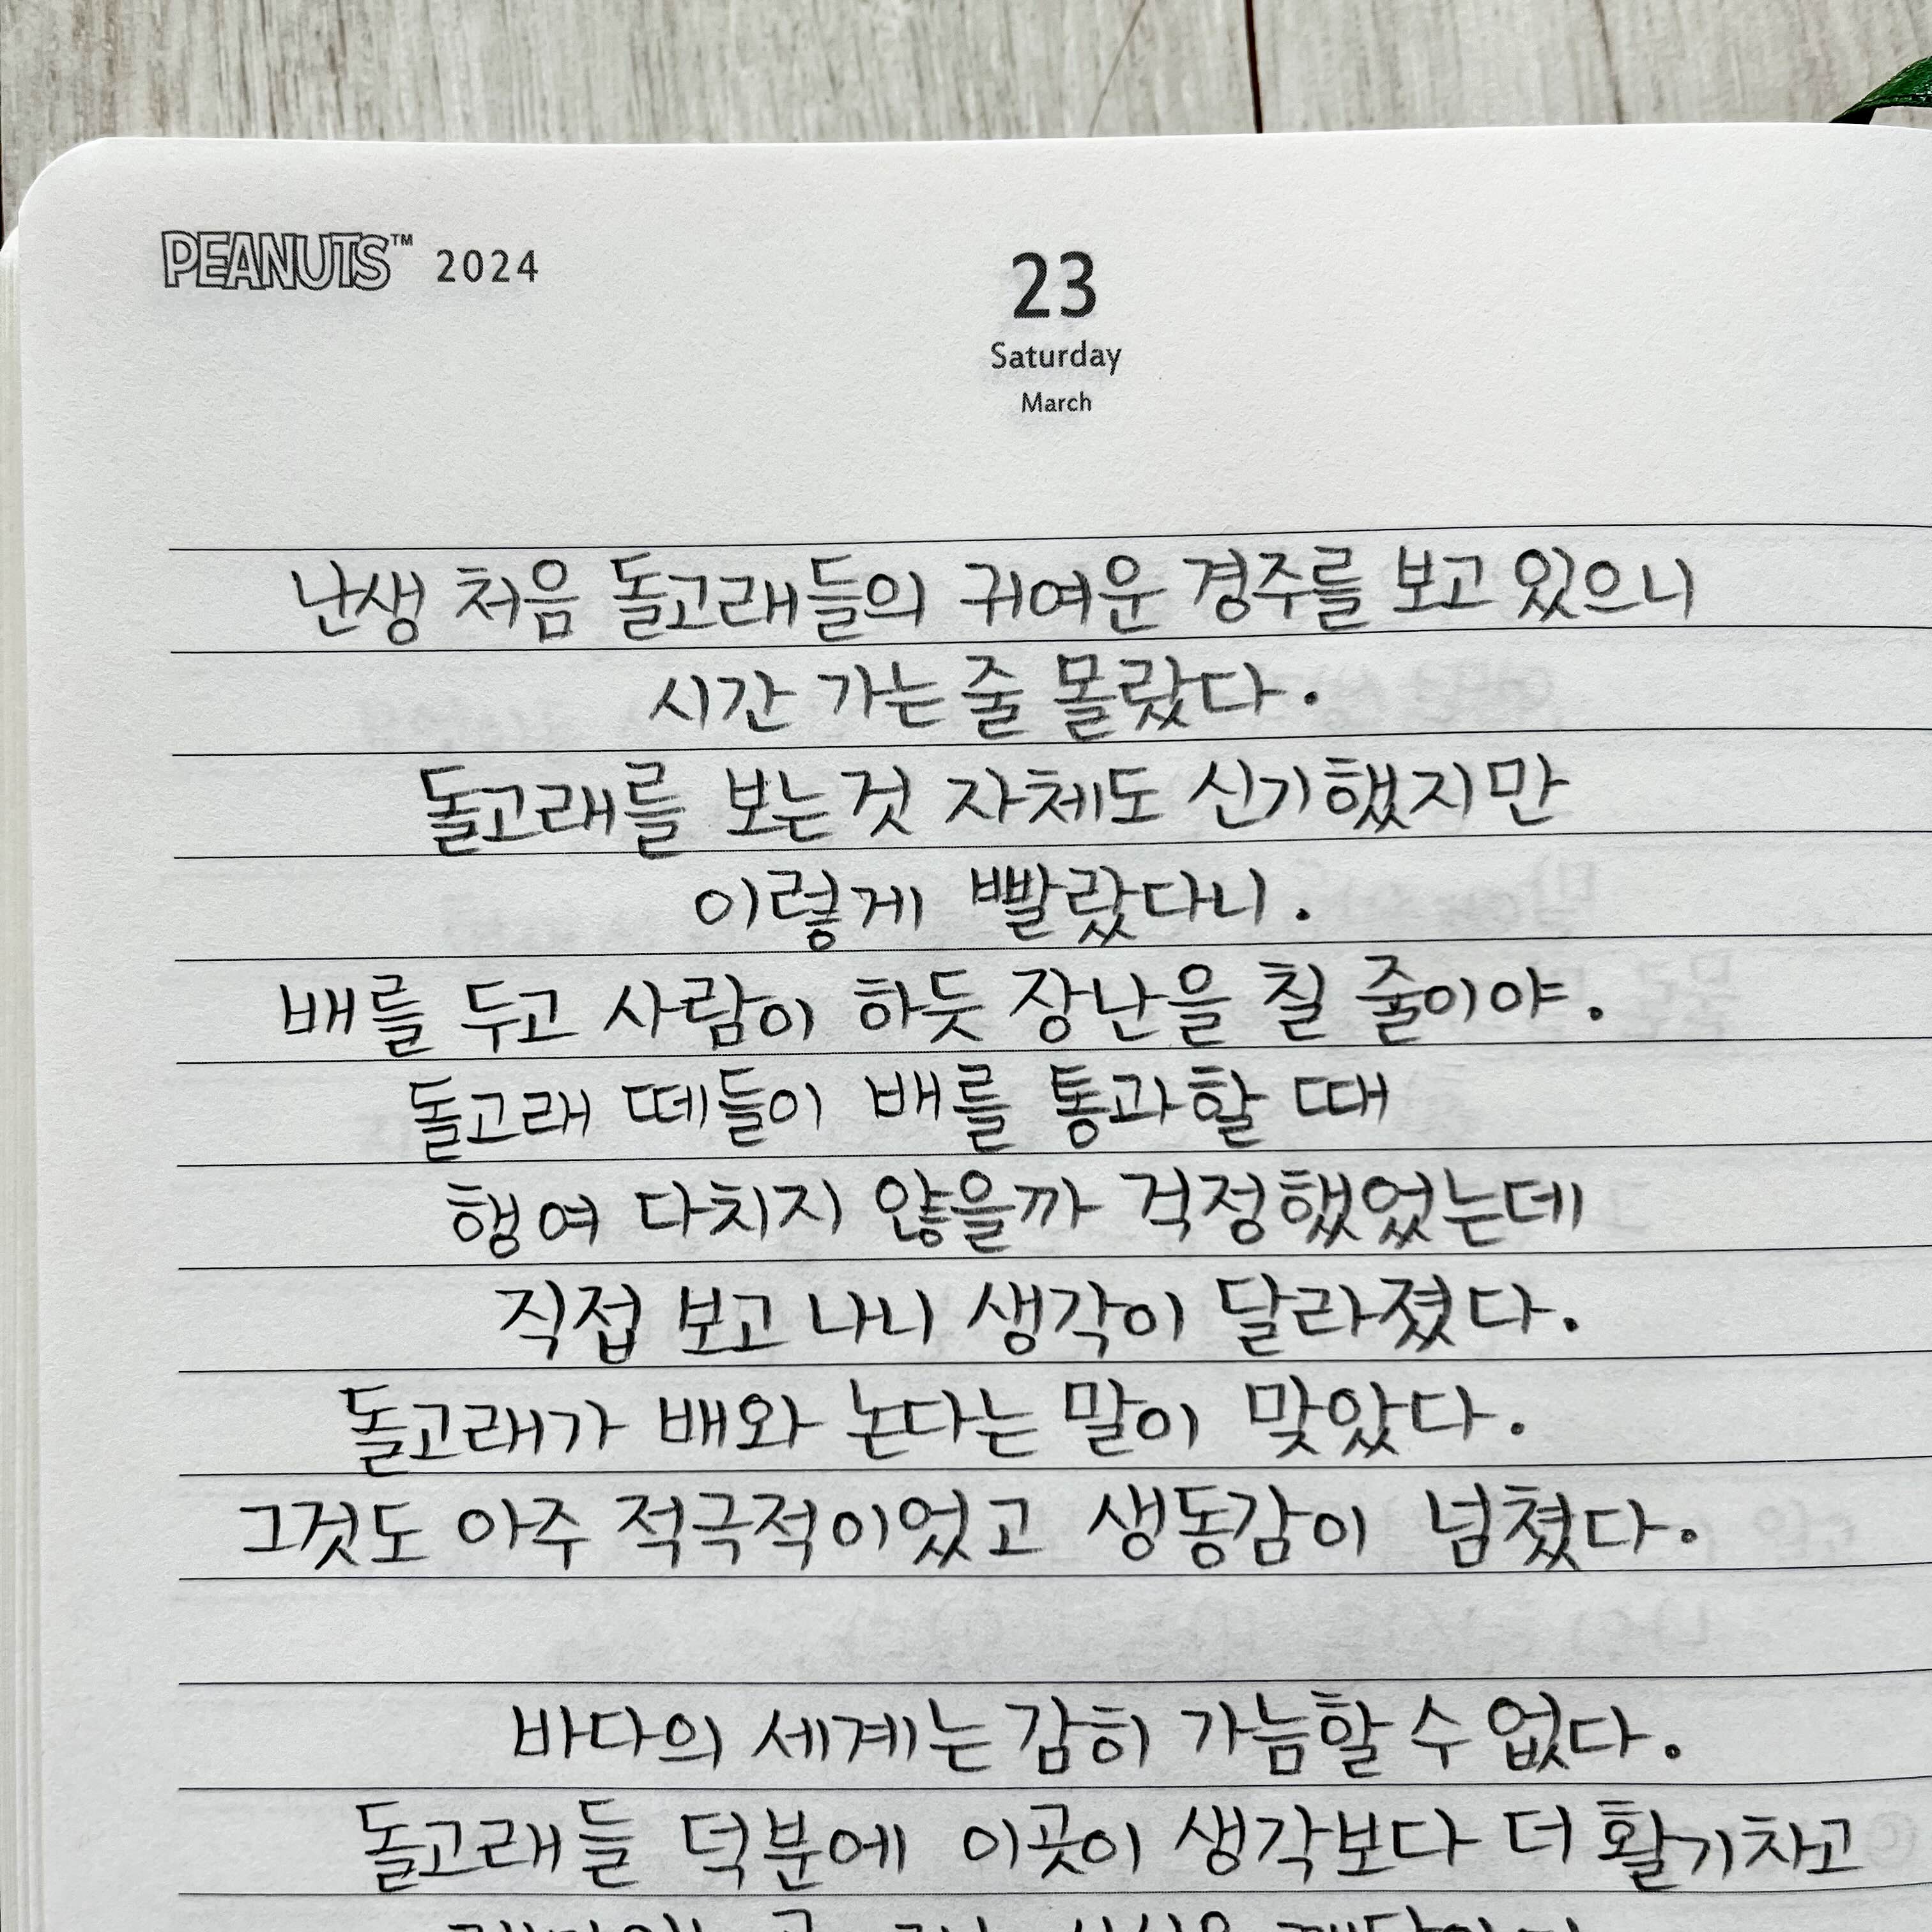 PEANUTS™ 2024
23
Saturday
March
난생 처음 돌고래들의 귀여운 경주를 보고 있으니
시간 가는 줄 몰랐다.
돌고래를 보는 것 자체도 신기했지만
이렇게 빨랐다니.
배를 두고 사람이 하듯 장난을 칠 줄이야.
돌고래 떼들이 배를 통과할 때
행여 다치지 않을까 걱정했었는데
직접 보고 나니 생각이 달라졌다.
돌고래가 배와 논다는 말이 맞았다.
그것도 아주 적극적이었고 생동감이 넘쳤다.
바다의 세계는 감히 가늠할 수 없다.
돌고래들 덕분에 이곳이 생각보다 더 활기차고